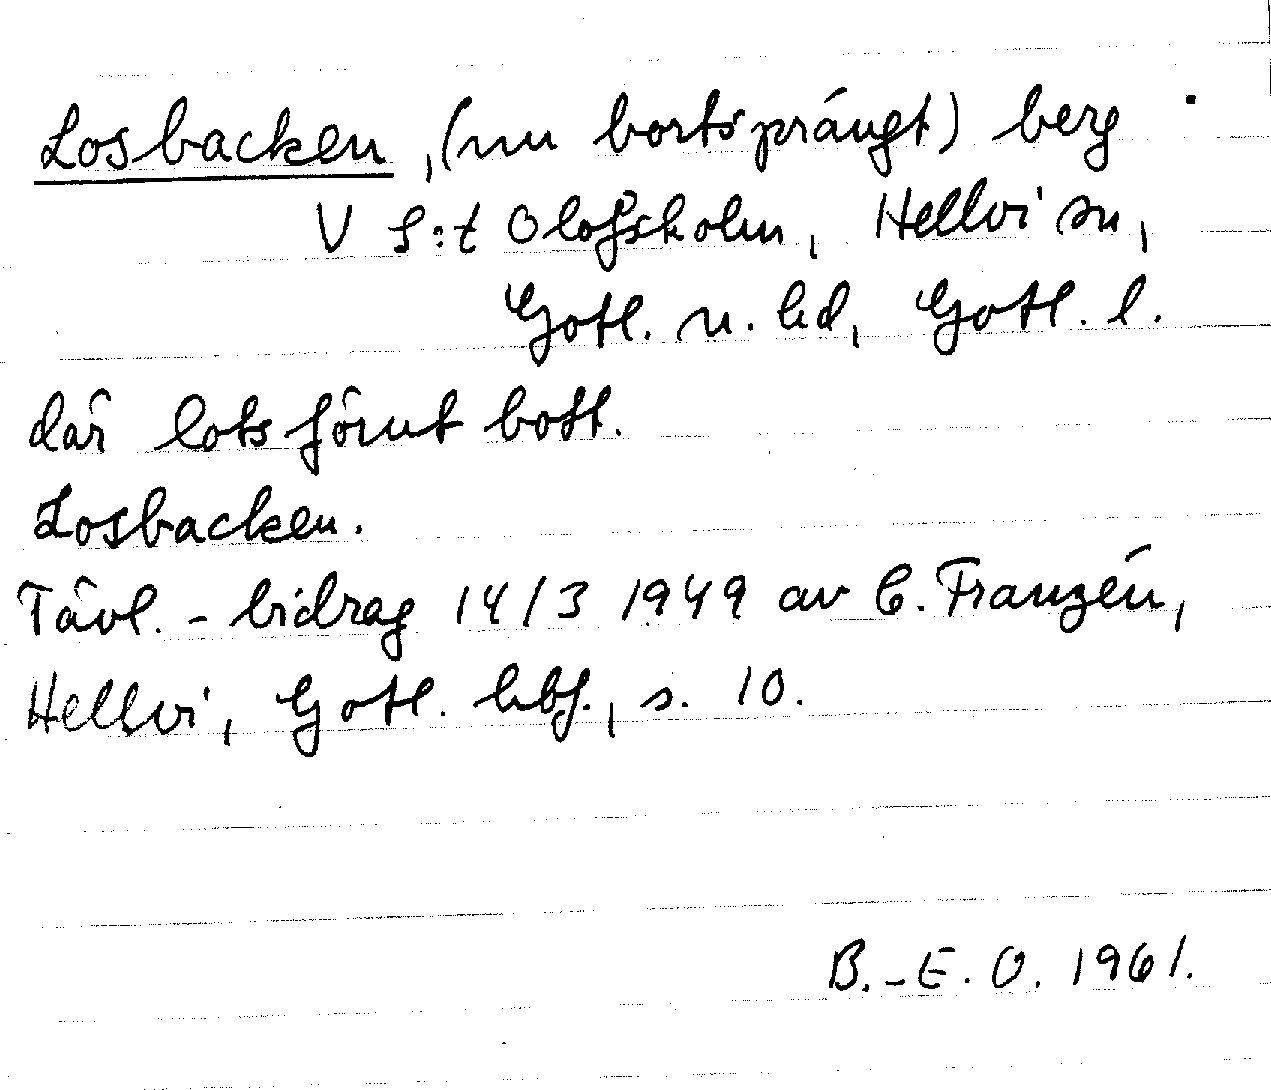 Losbacken, (nu bortsprängt) berg
V S:t Olofsholm, Hellvi sn,
Gotl. n. hd, Gotl. l.
där lots förut bott.
Losbacken.
Tävl.-bidrag 14/3 1949 av C. Franzén,
Hellvi, Gotl. hbf., s. 10.
B.-E. O. 1961.